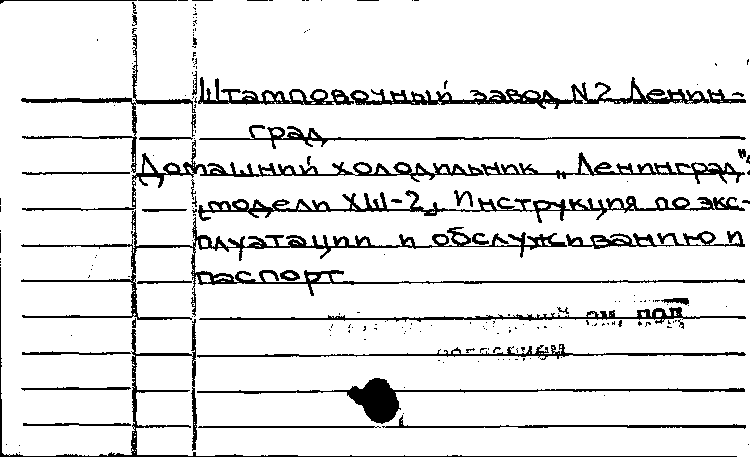 Штамповочный завод N2 Ленин-
град
Домашний холодильник „Ленинград":
[модели ХШ-2]. Инструкция по экс-
плуатации и обслуживанию и
паспорт
см. под